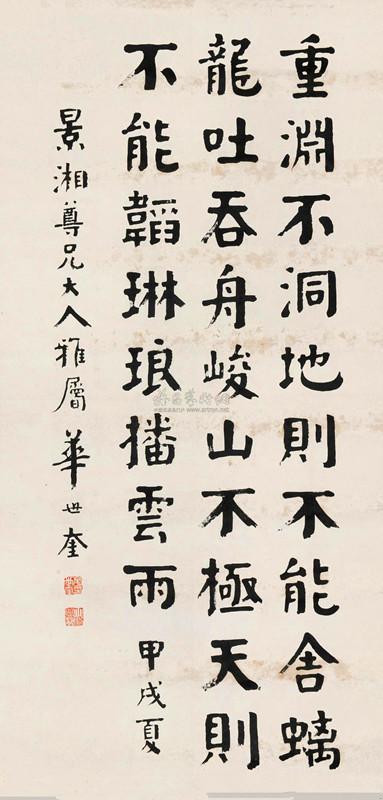 重淵不洞地則不能舍螭
龍吐吞舟峻山不極天則
不能韜琳琅播雲雨 甲戌夏
景湘尊兄大人雅屬 華世奎
www.artron.net